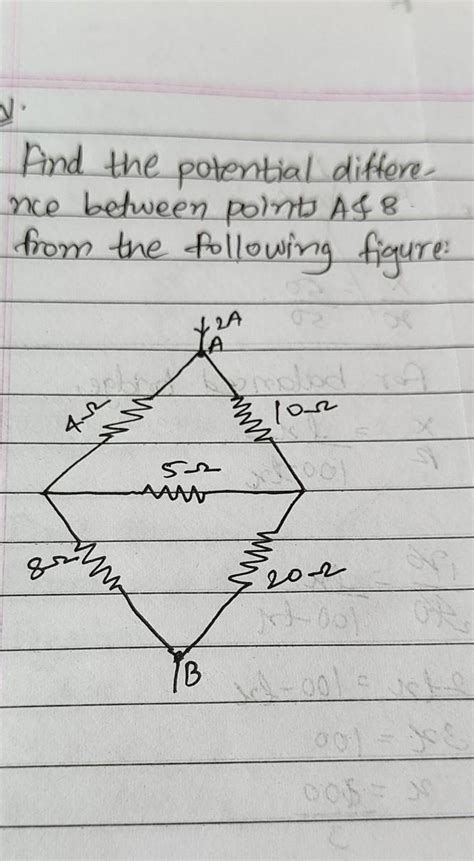 Find the potential differe-
nce between points A & B
from the following figure:
2A
A
4Ω
10Ω
5Ω
8Ω
20Ω
B